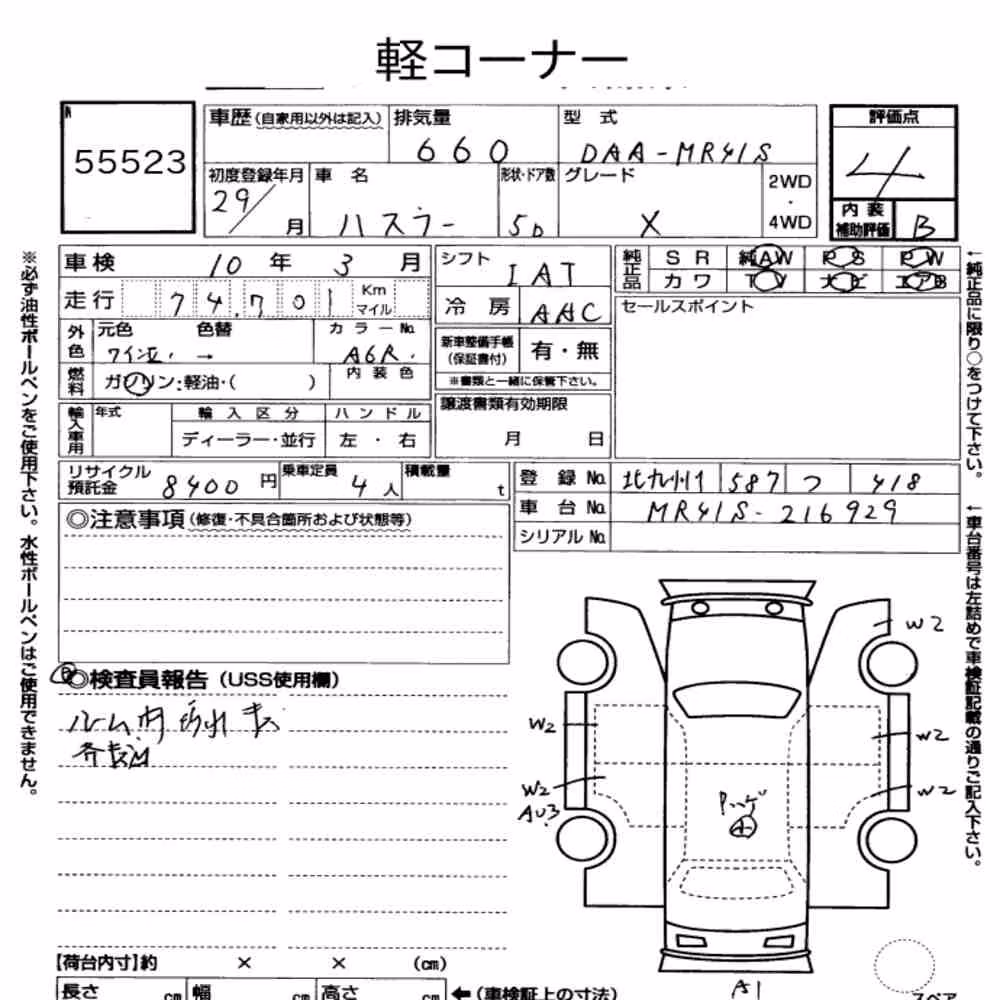 軽コーナー
55523
車歴(自家用以外は記入)
排気量
660
型 式
DAA-MR41S
評価点
4
内装
補助評価
B
初度登録年月
29/
月
車 名
ハスラー
形状・ドア数
5D
グレード
X
2WD
・
4WD
車検
10 年 3 月
シフト
IAT
純正品
SR 純AW PS PW
カワ TV ナビ エアB
走行
74,701
Km
マイル
冷房
AAC
セールスポイント
外色
元色
色替
カラーNo.
ワイン
→
A6R
新車整備手帳
(保証書付)
有・無
※書類と一緒に保管下さい。
燃料
ガソリン:軽油・( )
内装色
輸入車用
年式
輸入区分
ハンドル
ディーラー・並行
左・右
譲渡書類有効期限
月 日
リサイクル
預託金
8400 円
乗車定員
4人
積載量
t
登録No.
北九州 587 つ 418
車台No.
MR41S-216929
シリアルNo.
◎注意事項(修復・不具合箇所および状態等)
◎検査員報告(USS使用欄)
ルーム内汚れ
W2
W2
W2
W2
W2
AU3
A
A1
【荷台内寸】約 × × (cm)
長さ cm 幅 cm 高さ cm
←(車検証上の寸法)
スペア
※必ず油性ボールペンをご使用下さい。水性ボールペンはご使用できません。
←純正品に限り○をつけて下さい。
←車台番号は左詰めで車検証記載の通りご記入下さい。